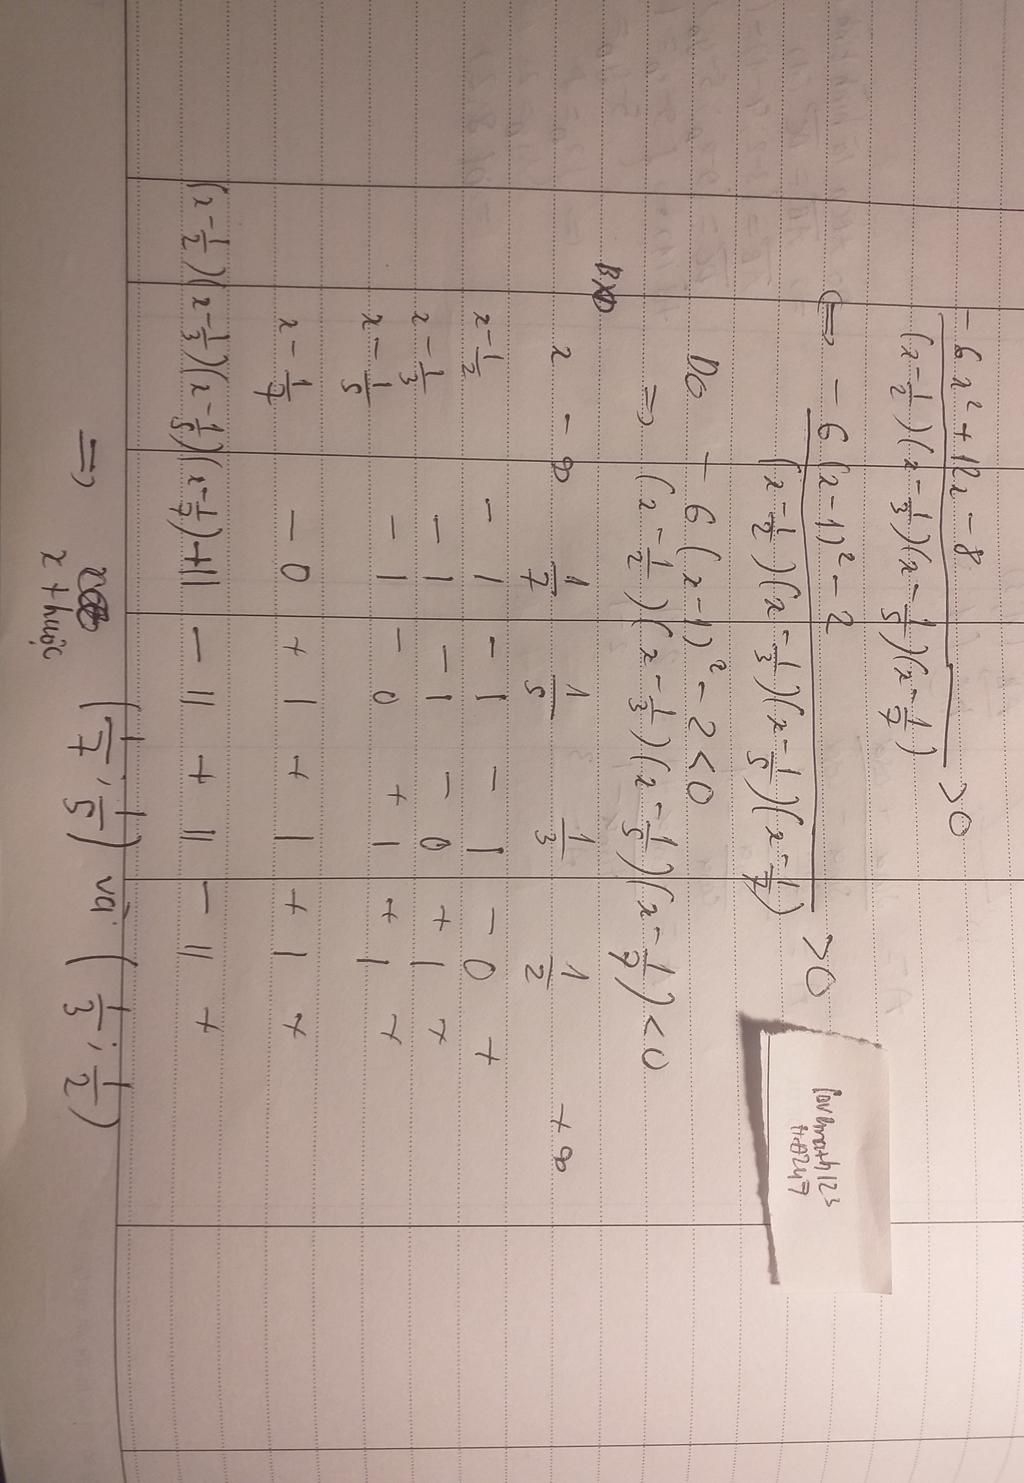 -6x² + 12x - 8
(x - 1/2)(x - 1/3)(x - 1/5)(x - 1/7) > 0
⇔ -6(x - 1)² - 2
(x - 1/2)(x - 1/3)(x - 1/5)(x - 1/7) > 0
Do -6(x - 1)² - 2 < 0
⇒ (x - 1/2)(x - 1/3)(x - 1/5)(x - 1/7) < 0
BXD
x -∞ 1/7 1/5 1/3 1/2 +∞
x - 1/2 - | - | - | - 0 +
x - 1/3 - | - | - 0 + | +
x - 1/5 - | - 0 + | + | +
x - 1/7 - 0 + | + | + | +
(x - 1/2)(x - 1/3)(x - 1/5)(x - 1/7) + || - || + || - || +
⇒ x thuộc (1/7; 1/5) và (1/3; 1/2)